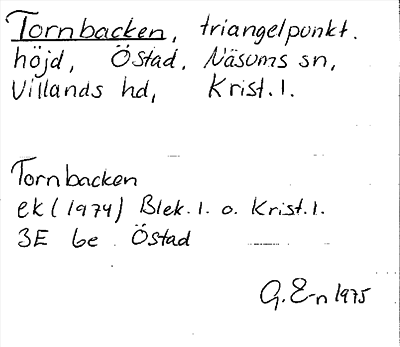 Tornbacken, triangelpunkt.
höjd, Östad, Näsums sn,
Villands hd, Krist. l.
Tornbacken
ek (1974) Blek. l. o. Krist. l.
3E 6e Östad
G. E-n 1975